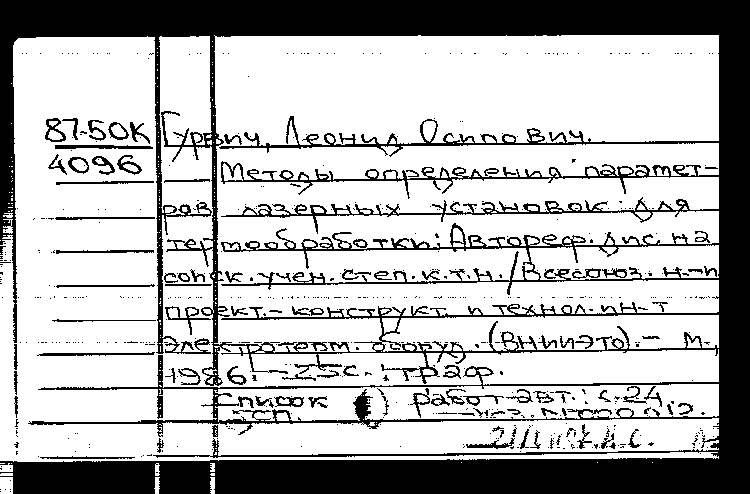 87-50К Гурвич, Леонид Осипович.
4096 Методы определения парамет-
ров лазерных установок для
термообработки: Автореф. дис. на
соиск. учен. степ. к.т.н. / Всесоюз. н.-и
проект.- конструкт. и технол. ин-т
электротерм. оборуд. (ВНИИЭТО). - М.,
1986. - 25с.: граф.
Список работ авт.: с.24.
дсп.